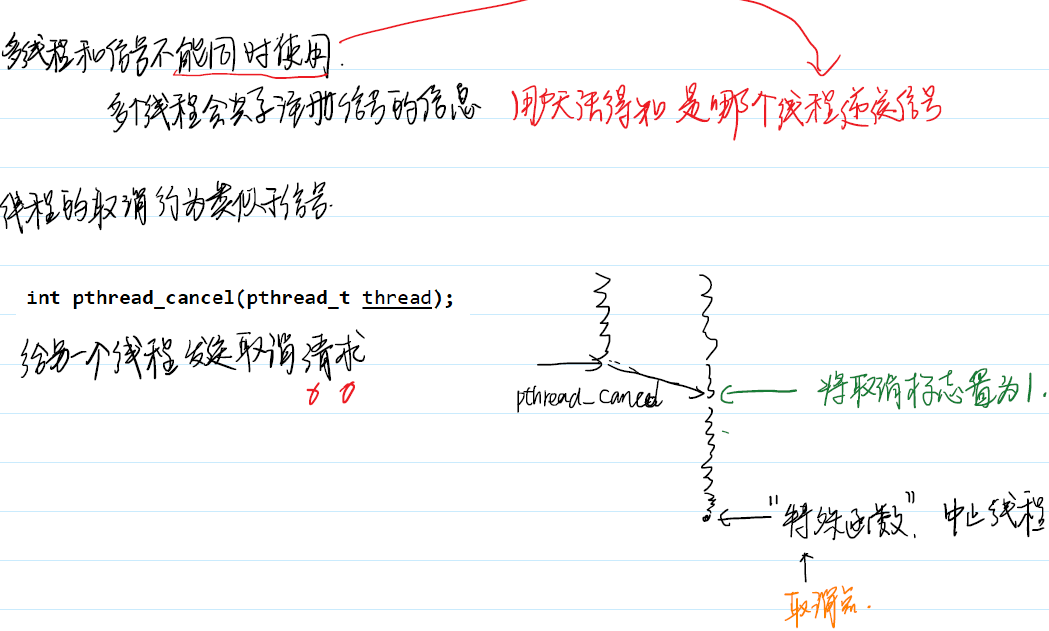 多线程和信号不能同时使用.
多个线程会共享注册信号的信息 用户无法得知是哪个线程递送信号
线程的取消行为类似于信号.
int pthread_cancel(pthread_t thread);
给另一个线程发送取消请求
pthread_cancel
将取消标志置为1.
"特殊函数". 中止线程
取消点.